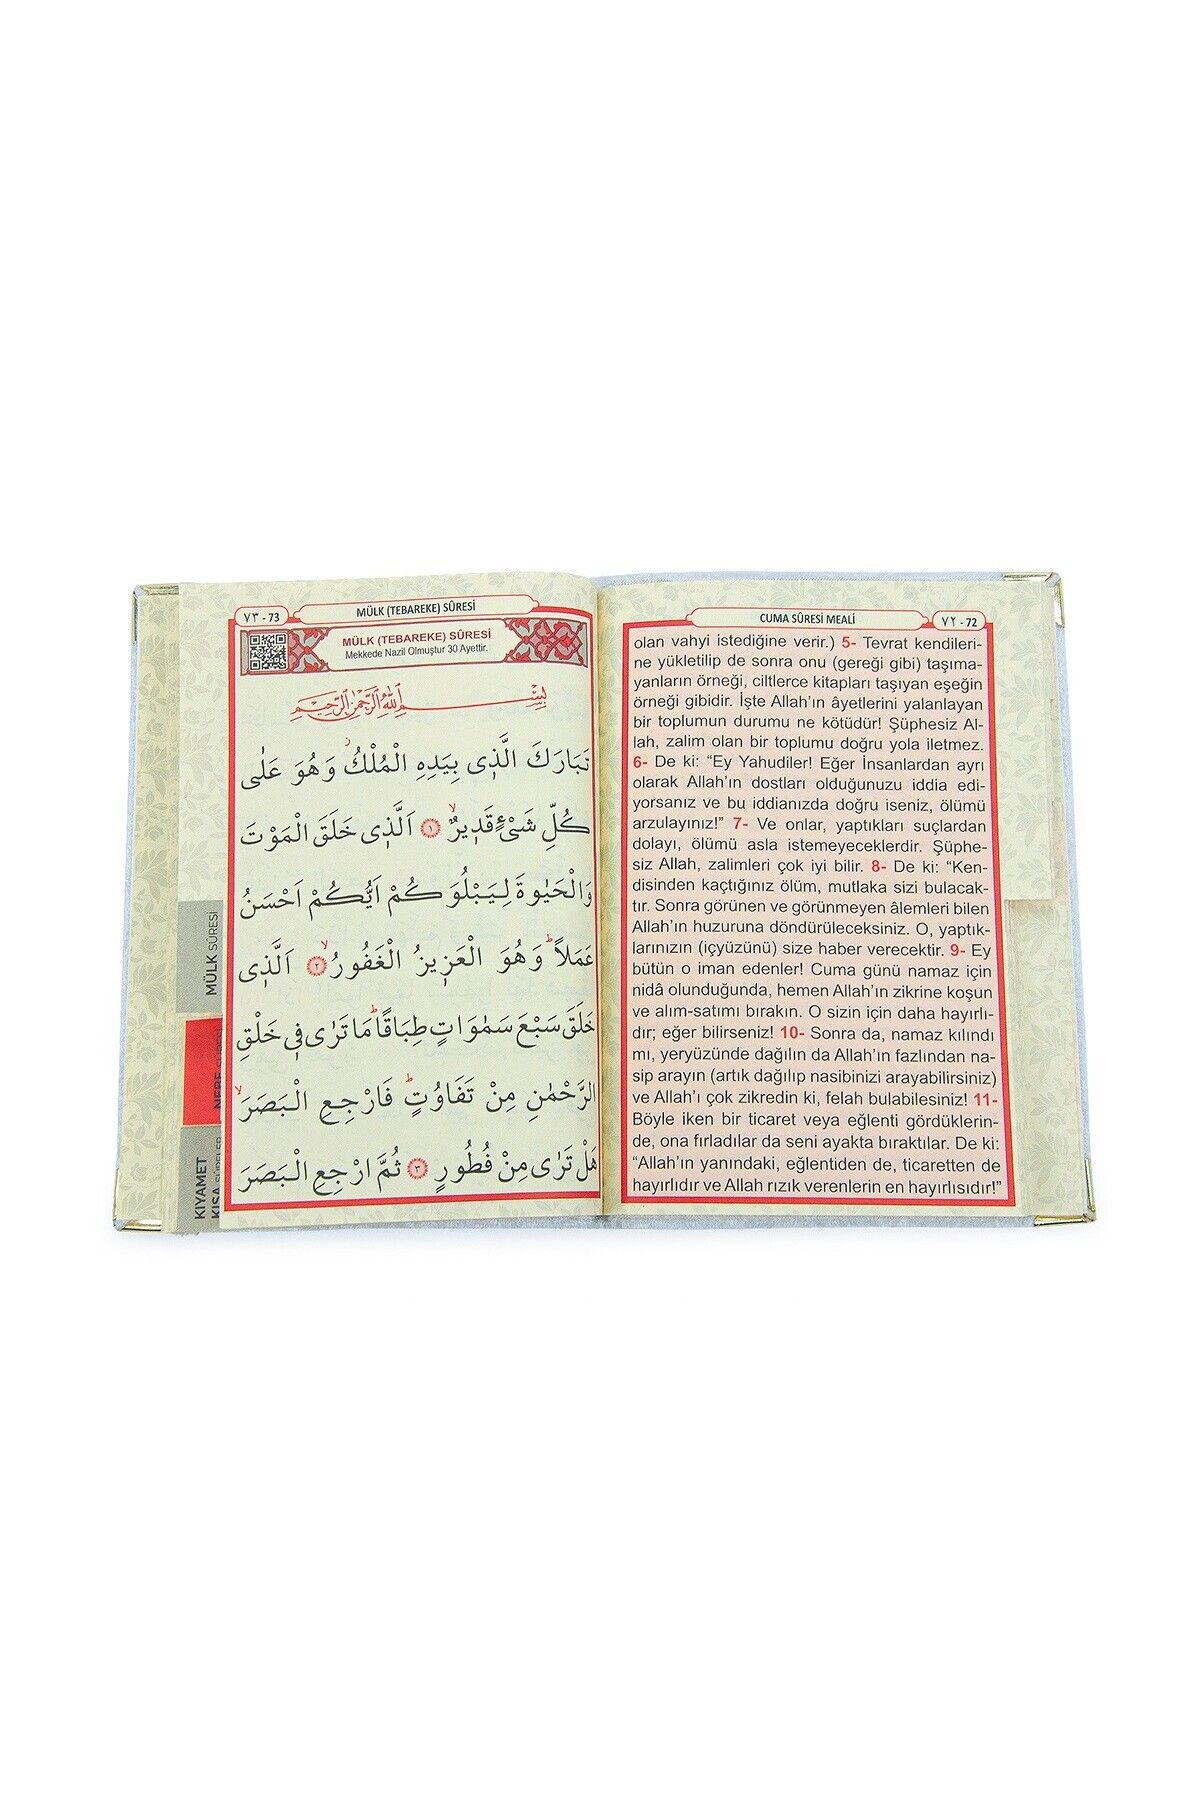 CUMA SÛRESİ MEALİ
٧٢ - 72
olan vahyi istediğine verir.) 5- Tevrat kendileri-
ne yükletilip de sonra onu (gereği gibi) taşıma-
yanların örneği, ciltlerce kitapları taşıyan eşeğin
örneği gibidir. İşte Allah’ın âyetlerini yalanlayan
bir toplumun durumu ne kötüdür! Şüphesiz Al-
lah, zalim olan bir toplumu doğru yola iletmez.
6- De ki: “Ey Yahudiler! Eğer İnsanlardan ayrı
olarak Allah’ın dostları olduğunuzu iddia edi-
yorsanız ve bu iddianızda doğru iseniz, ölümü
arzulayınız!” 7- Ve onlar, yaptıkları suçlardan
dolayı, ölümü asla istemeyeceklerdir. Şüphe-
siz Allah, zalimleri çok iyi bilir. 8- De ki: “Ken-
disinden kaçtığınız ölüm, mutlaka sizi bulacak-
tır. Sonra görünen ve görünmeyen âlemleri bilen
Allah’ın huzuruna döndürüleceksiniz. O, yaptık-
larınızın (içyüzünü) size haber verecektir. 9- Ey
bütün o iman edenler! Cuma günü namaz için
nidâ olunduğunda, hemen Allah’ın zikrine koşun
ve alım-satımı bırakın. O sizin için daha hayırlı-
dır; eğer bilirseniz! 10- Sonra da, namaz kılındı
mı, yeryüzünde dağılın da Allah’ın fazlından na-
sip arayın (artık dağılıp nasibinizi arayabilirsiniz)
ve Allah’ı çok zikredin ki, felah bulabilesiniz! 11-
Böyle iken bir ticaret veya eğlenti gördüklerin-
de, ona fırladılar da seni ayakta bıraktılar. De ki:
“Allah’ın yanındaki, eğlentiden de, ticaretten de
hayırlıdır ve Allah rızık verenlerin en hayırlısıdır!”
٧٣ - 73
MÜLK (TEBAREKE) SÛRESİ
MÜLK (TEBAREKE) SÛRESİ
Mekkede Nazil Olmuştur 30 Ayettir.
بِسْمِ اللهِ الرَّحْمٰنِ الرَّحِيمِ
تَبَارَكَ الَّذٖى بِيَدِهِ الْمُلْكُ وَهُوَ عَلٰى
كُلِّ شَىْءٍ قَدٖيرٌ ۙ ١ اَلَّذٖى خَلَقَ الْمَوْتَ
وَالْحَيٰوةَ لِيَبْلُوَكُمْ اَيُّكُمْ اَحْسَنُ
عَمَلًا ؕ وَهُوَ الْعَزٖيزُ الْغَفُورُ ۙ ٢ اَلَّذٖى
خَلَقَ سَبْعَ سَمٰوَاتٍ طِبَاقًا ؕ مَا تَرٰى فٖى خَلْقِ
الرَّحْمٰنِ مِنْ تَفَاوُتٍ ؕ فَارْجِعِ الْبَصَرَ ۙ
هَلْ تَرٰى مِنْ فُطُورٍ ٣ ثُمَّ ارْجِعِ الْبَصَرَ
MÜLK SÛRESİ
KIYAMET